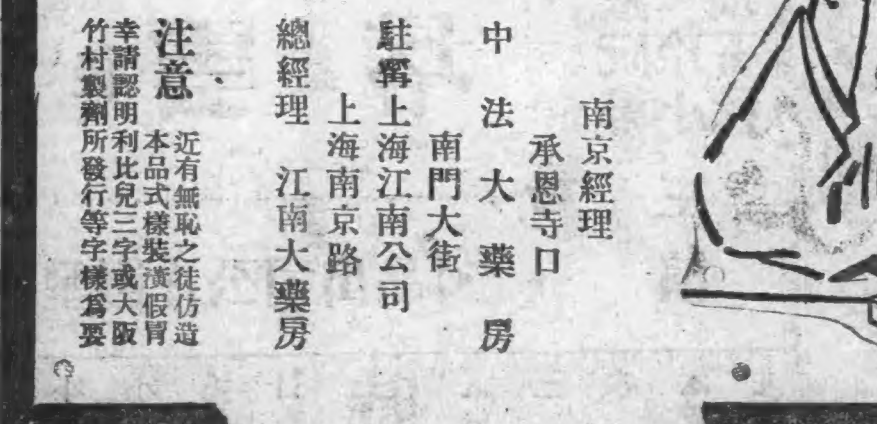 南京經理
承恩寺口
中法大藥房
南門大街
駐寗上海江南公司
上海南京路
總經理 江南大藥房
注意
近有無恥之徒仿造
本品式樣裝潢假冒
幸請認明利比兒三字或大阪
竹村製劑所發行等字樣爲要